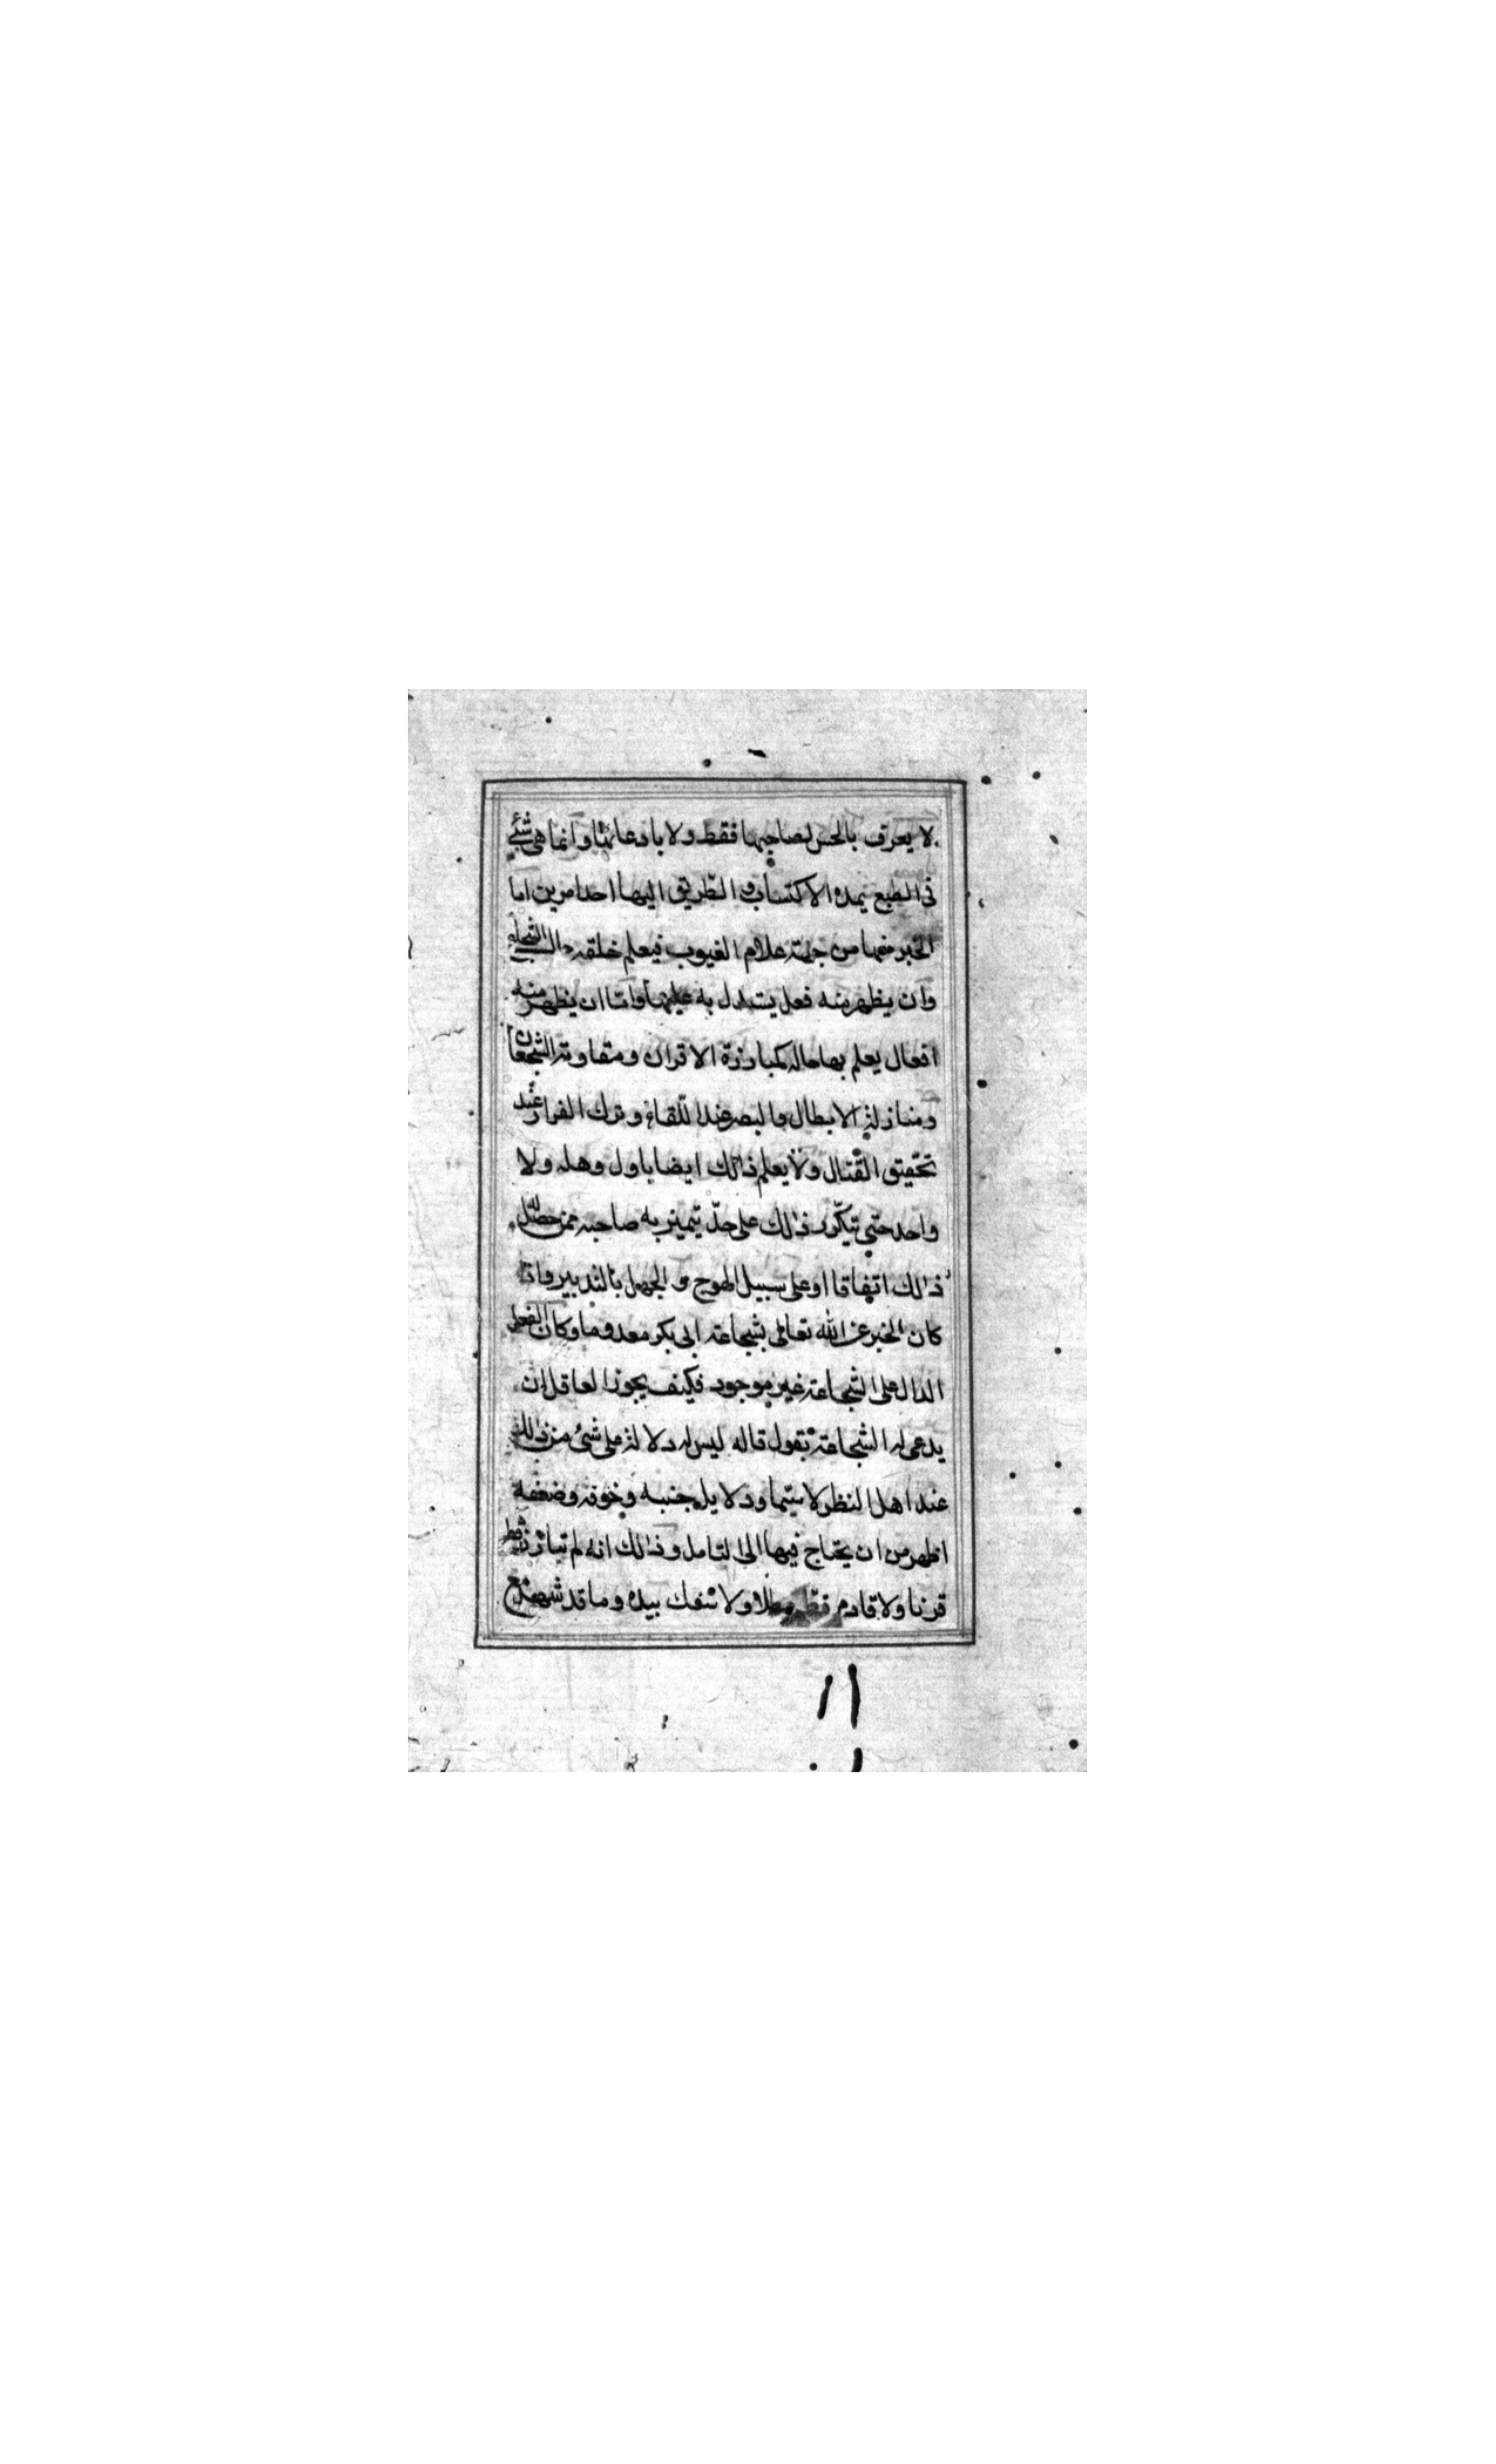 لا يعرف بالحس لصاحبها فقط ولا بادعائها وانما هى شئ
فى الطبع يمده الاكتساب والطريق اليها احد امرين اما
الخبر عنها من جهته علام الغيوب فيعلم خلقه حال الشجاع
وان يظهر منه فعل يستدل به عليها واما ان يظهر منه
افعال يعلم بها حاله كمبارزة الاقران ومقاومة الشجعان
ومنازلة الابطال والبصر عند اللقاء وترك الفرار عند
تحقيق القتال ولا يعلم ذلك ايضا باول وهله ولا
واحد حتى يتكرر ذلك على حد يتميز به صاحبه ممن حصل له
ذلك اتفاقا او على سبيل الهوج والجهل بالتدبير واذا
كان الخبر عن الله تعالى بشجاعة ابى بكر معدوما وكان الفعل
الدال على الشجاعة غير موجود فكيف يجوز لعاقل ان
يدعى له الشجاعة بقول قاله ليس له دلالة على شئ من ذلك
عند اهل النظر لا سيما ودلايل جنبه وخوفه وضعفه
اظهر من ان يحتاج فيها الى التامل وذلك انه لم يبارز قط
قرنا ولا قادم قط بطلا ولا سفك بيده دما قد شهد مع
١١